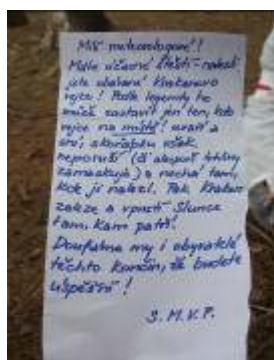 Milí meteorologové!
Máte úžasné štěstí - nalezli
jste ukázané Krakenovo
vejce! Podle legendy ho
může zastavit jen ten, kdo
vejce na místě! uvaří a
sní, skořápku však
neporuší (či alespoň trhliny
zamaskuje) a nechá tam,
kde ji nalezl. Pak Kraken
zaleze a vpustí Slunce
tam, kam patří!
Doufáme my i obyvatelé
těchto končin, že budete
úspěšní!
S.M.V.P.